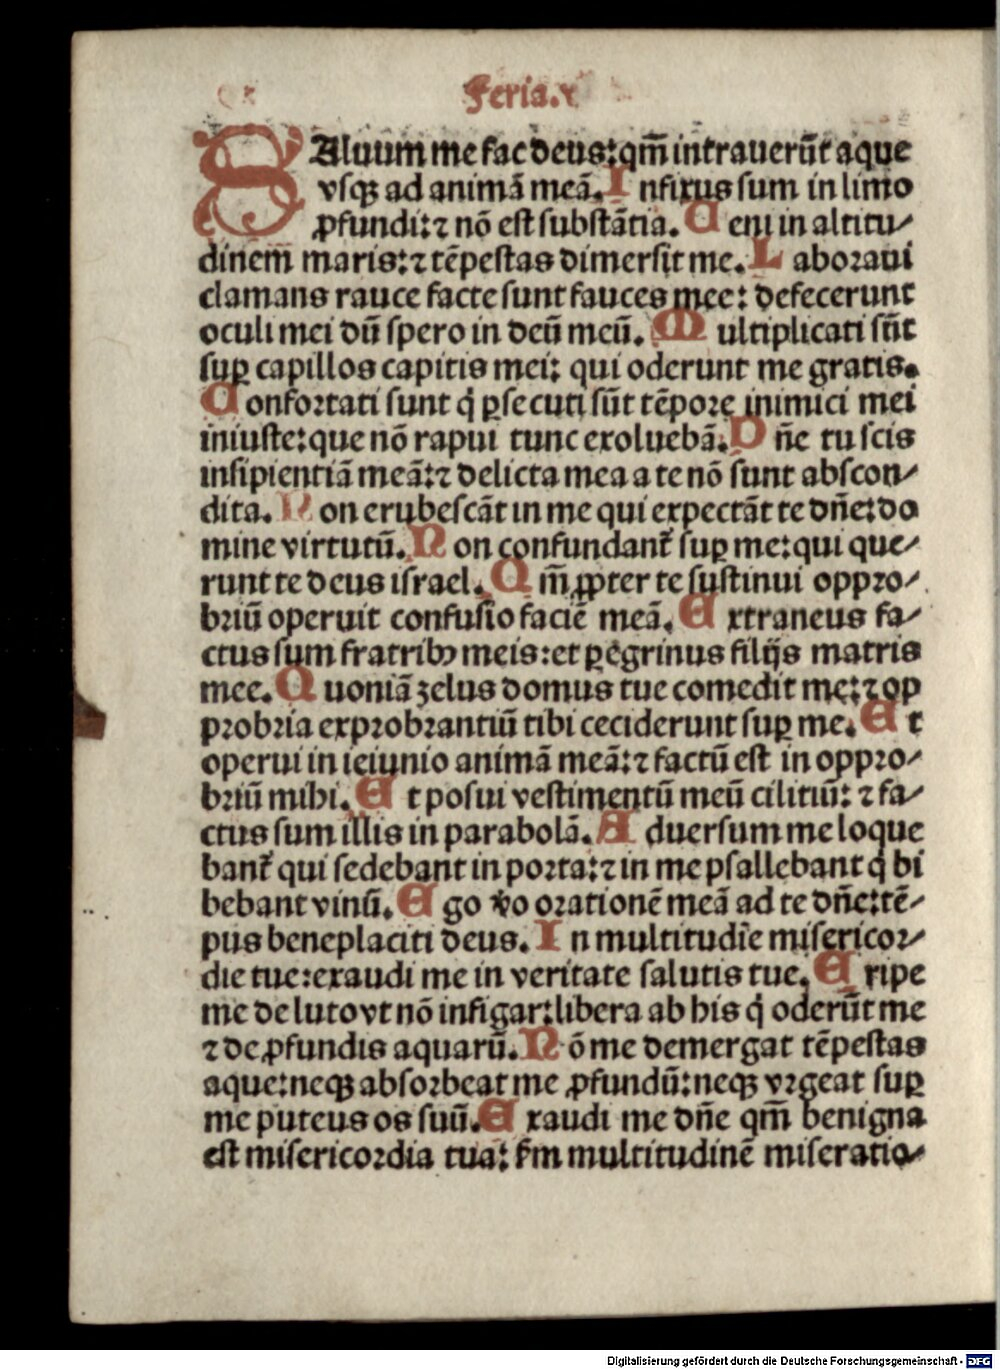 Feria.v
SAluum me fac deus:qm̄ intrauerūt aque
vsqꝫ ad animā meā. Infixus sum in limo
ꝓfundi:⁊ nō est substātia. Ueni in altitu⸗
dinem̄ maris:⁊ tēpestas dimersit me. Laboraui
clamans rauce facte sunt fauces mee: defecerunt
oculi mei dū spero in deū meū. Multiplicati sūt
suꝑ capillos capitis mei: qui oderunt me gratis.
Confortati sunt q̇ ꝑsecuti sūt tēpore inimici mei
iniuste:que nō rapui tunc exoluebā. Dn̄e tu scis
insipientiā meā:⁊ delicta mea a te nō sunt abscon⸗
dita. Non erubescāt in me qui expectāt te dn̄e:do
mine virtutū. Non confundant᷑ suꝑ me:qui que⸗
runt te deus israel. Qm̄ ꝓpter te sustinui oppro⸗
briū operuit confusio faciē meā. Extraneus fa⸗
ctus sum fratribꝰ meis:et ꝑegrinus filijs matris
mee. Quoniā zelus domus tue comedit me:⁊ op
probria exprobrantiū tibi ceciderunt suꝑ me. Et
operui in ieiunio animā meā:⁊ factū est in oppro⸗
briū mihi. Et posui vestimentū meū cilitiū: ⁊ fa⸗
ctus sum illis in parabolā. Aduersum me loque
bant᷑ qui sedebant in porta:⁊ in me psallebant q̇ bi
bebant vinū. Ego v̆o orationē meā ad te dn̄e:tē⸗
pus beneplaciti deus. In multitudīe misericor⸗
die tue:exaudi me in veritate salutis tue. Eripe
me de luto vt nō infigar:libera ab his q̇ oderūt me
⁊ de ꝓfundis aquarū. Nō me demergat tēpestas
aque:neqꝫ absorbeat me ꝓfundū:neqꝫ vrgeat suꝑ
me puteus os suū. Exaudi me dn̄e qm̄ benigna
est misericordia tua: s̄m multitudinē miseratio⸗
Digitalisierung gefördert durch die Deutsche Forschungsgemeinschaft - DFG